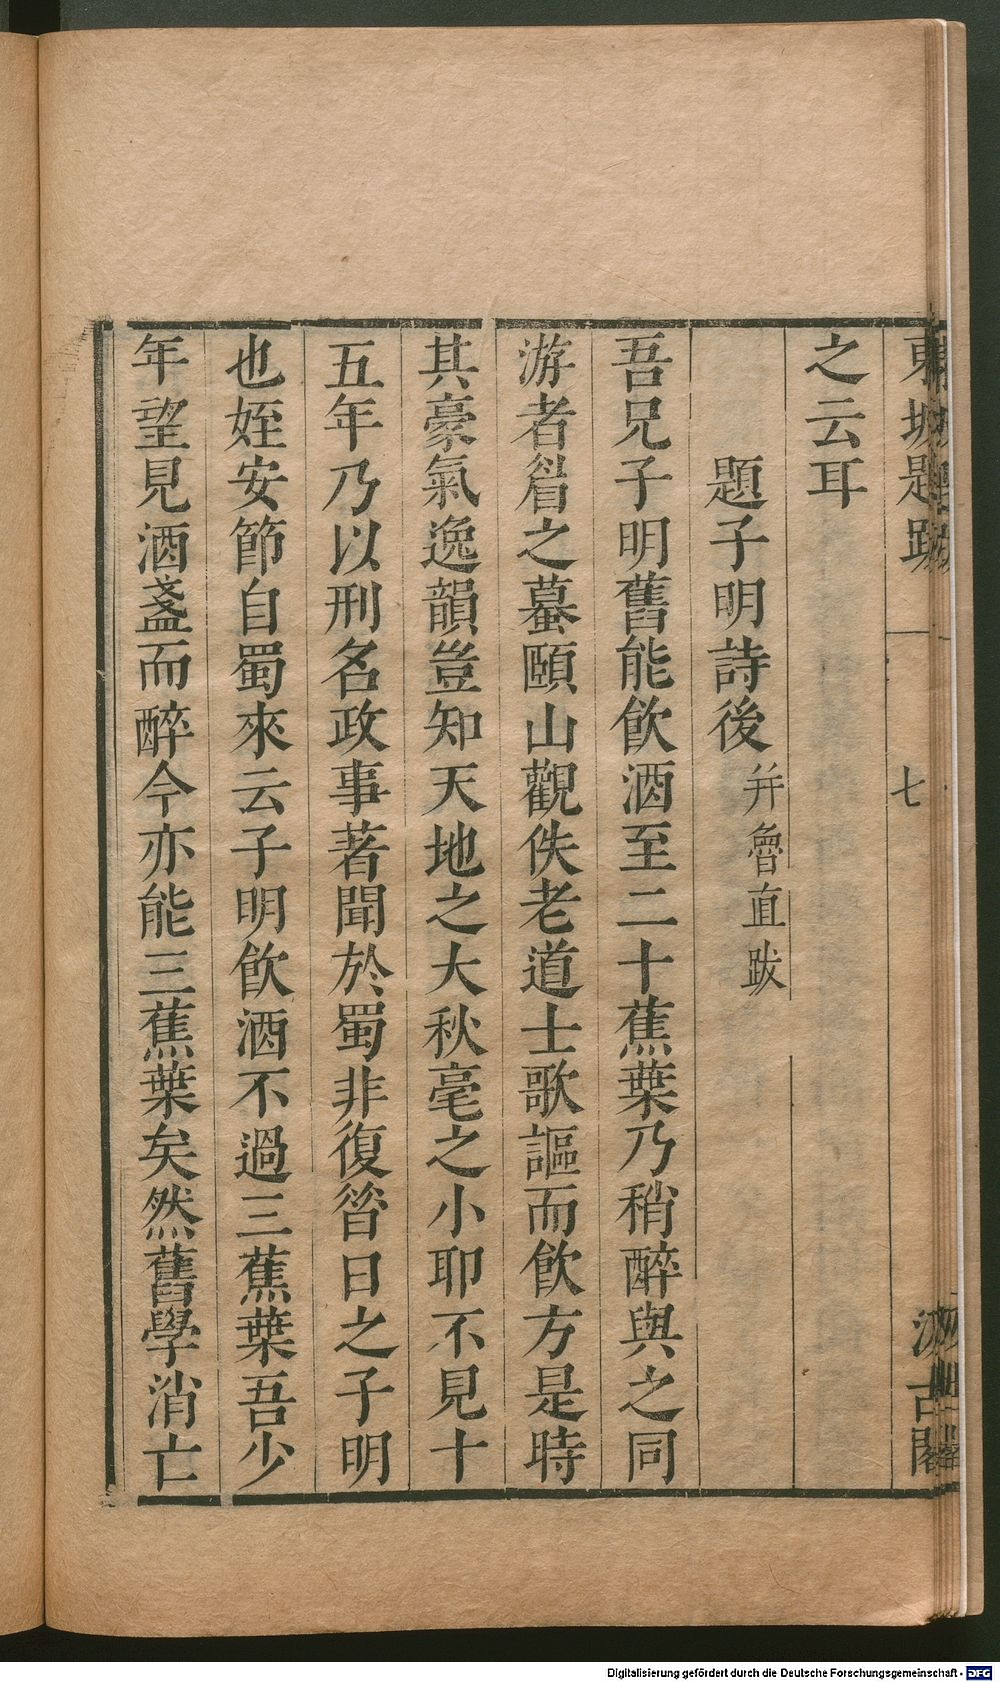 東坡題跋 七 汲古閣
之云耳
題子明詩後 并魯直跋
吾兄子明舊能飲酒至二十蕉葉乃稍醉與之同
游者眉之蟇頤山觀佚老道士歌謳而飲方是時
其豪氣逸韻豈知天地之大秋毫之小耶不見十
五年乃以刑名政事著聞於蜀非復昝日之子明
也姪安節自蜀來云子明飲酒不過三蕉葉吾少
年望見酒盞而醉今亦能三蕉葉矣然舊學消亡
Digitalisierung gefördert durch die Deutsche Forschungsgemeinschaft - DFG